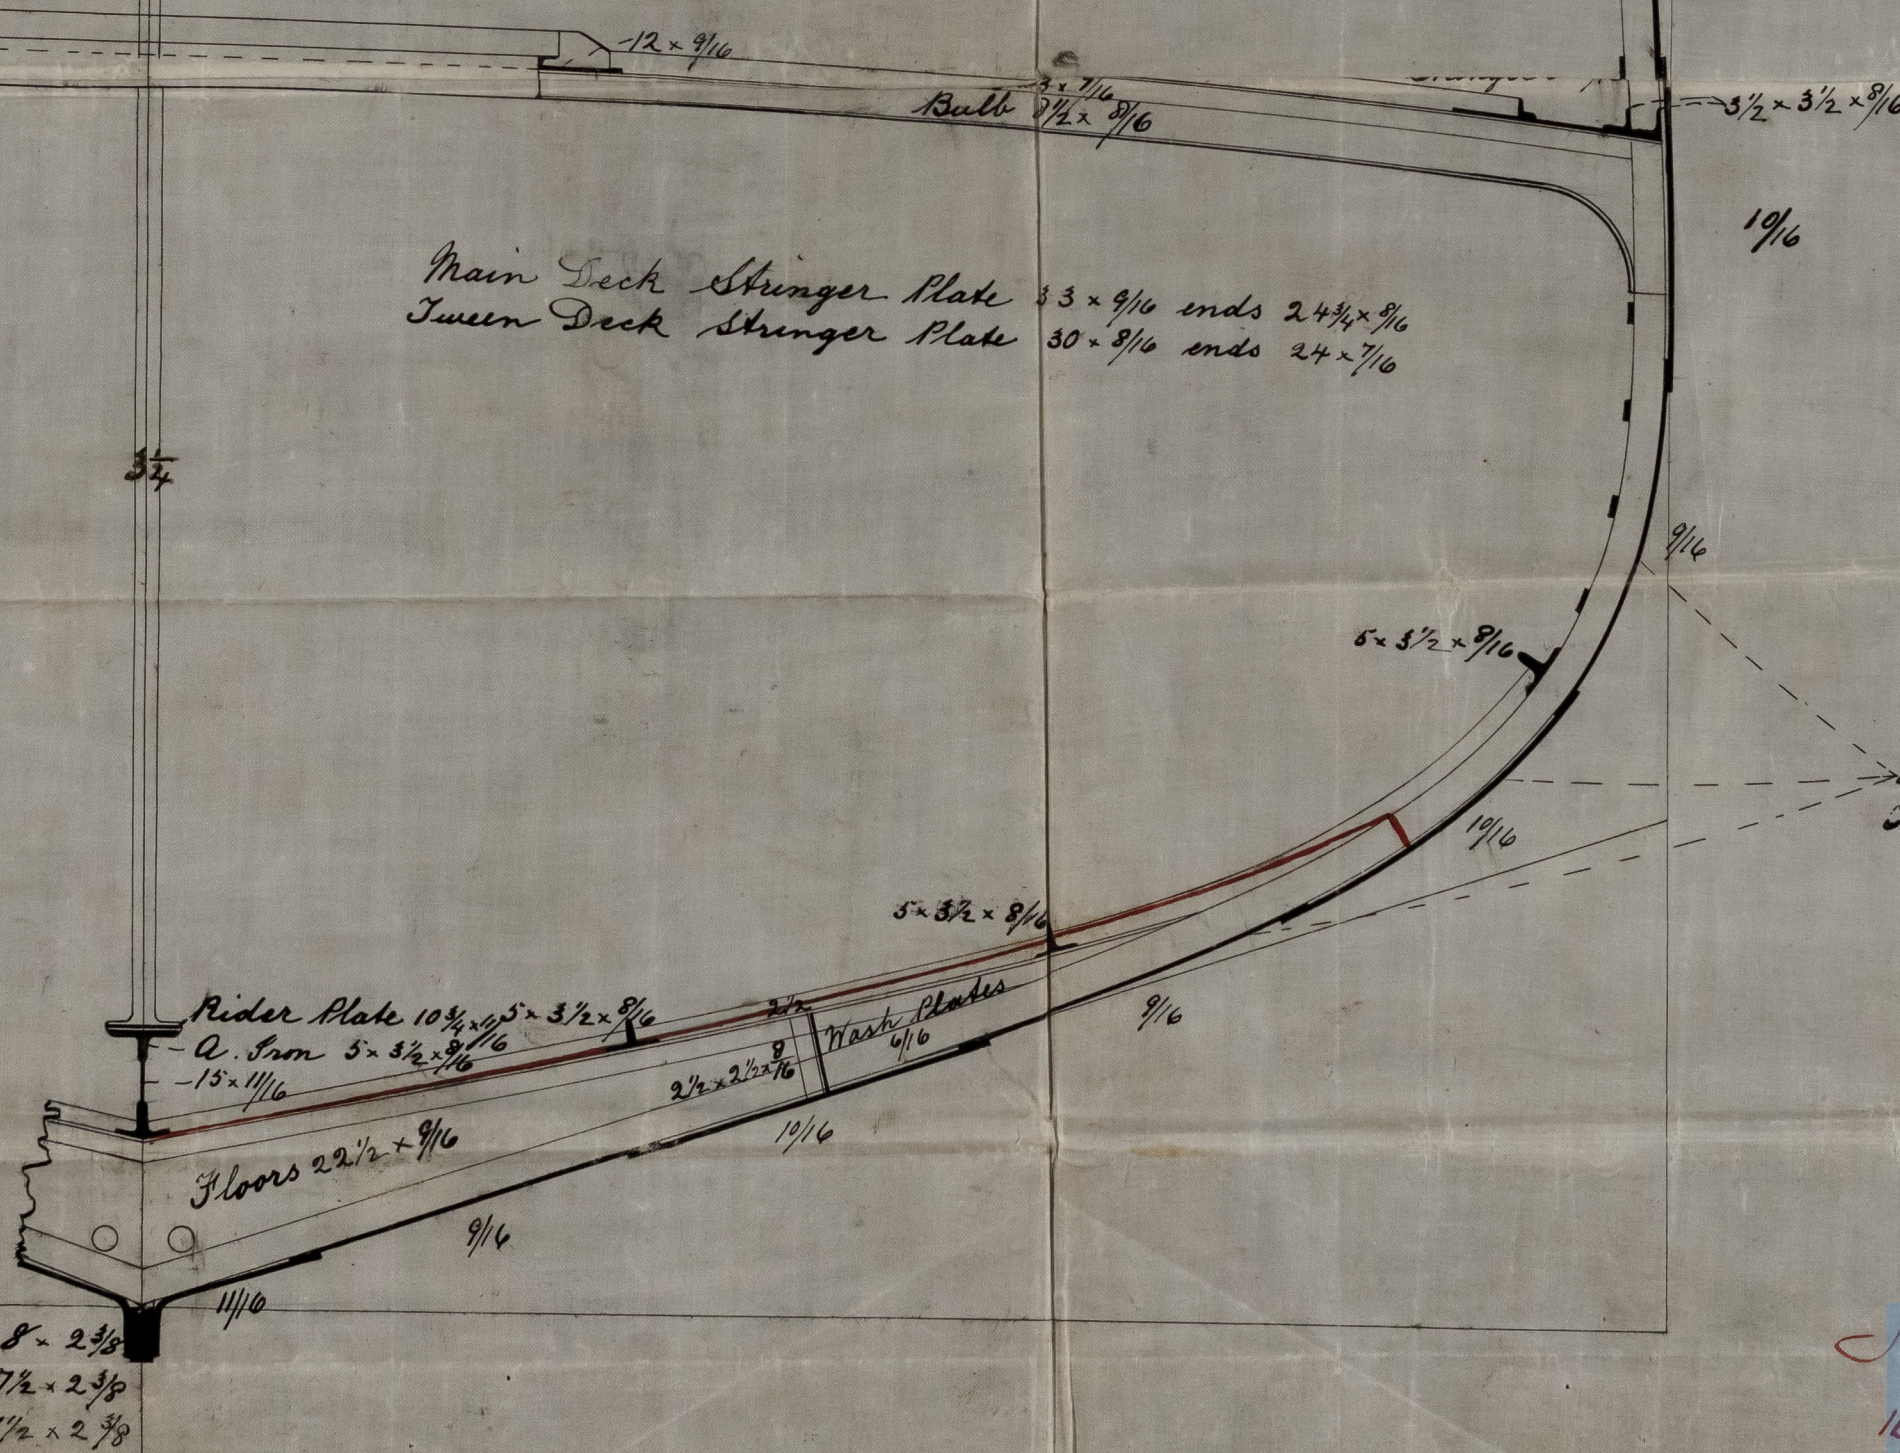 12 × 9/16
Bulb 8 1/2 × 8/16
3 × 7/16
3 1/2 × 3 1/2 × 8/16
10/16
Main Deck Stringer Plate 33 × 9/16 ends 24 3/4 × 8/16
Tween Deck Stringer Plate 30 × 8/16 ends 24 × 7/16
3 1/4
9/16
5 × 3 1/2 × 8/16
10/16
5 × 3 1/2 × 8/16
Rider Plate 10 3/4 × 11/16
5 × 3 1/2 × 8/16
A. Iron 5 × 3 1/2 × 8/16
15 × 11/16
2 1/2
Wash Plates
6/16
2 1/2 × 2 1/2 × 8/16
9/16
10/16
Floors 22 1/2 × 9/16
9/16
11/16
8 × 2 3/8
7 1/2 × 2 3/8
1/2 × 2 3/8